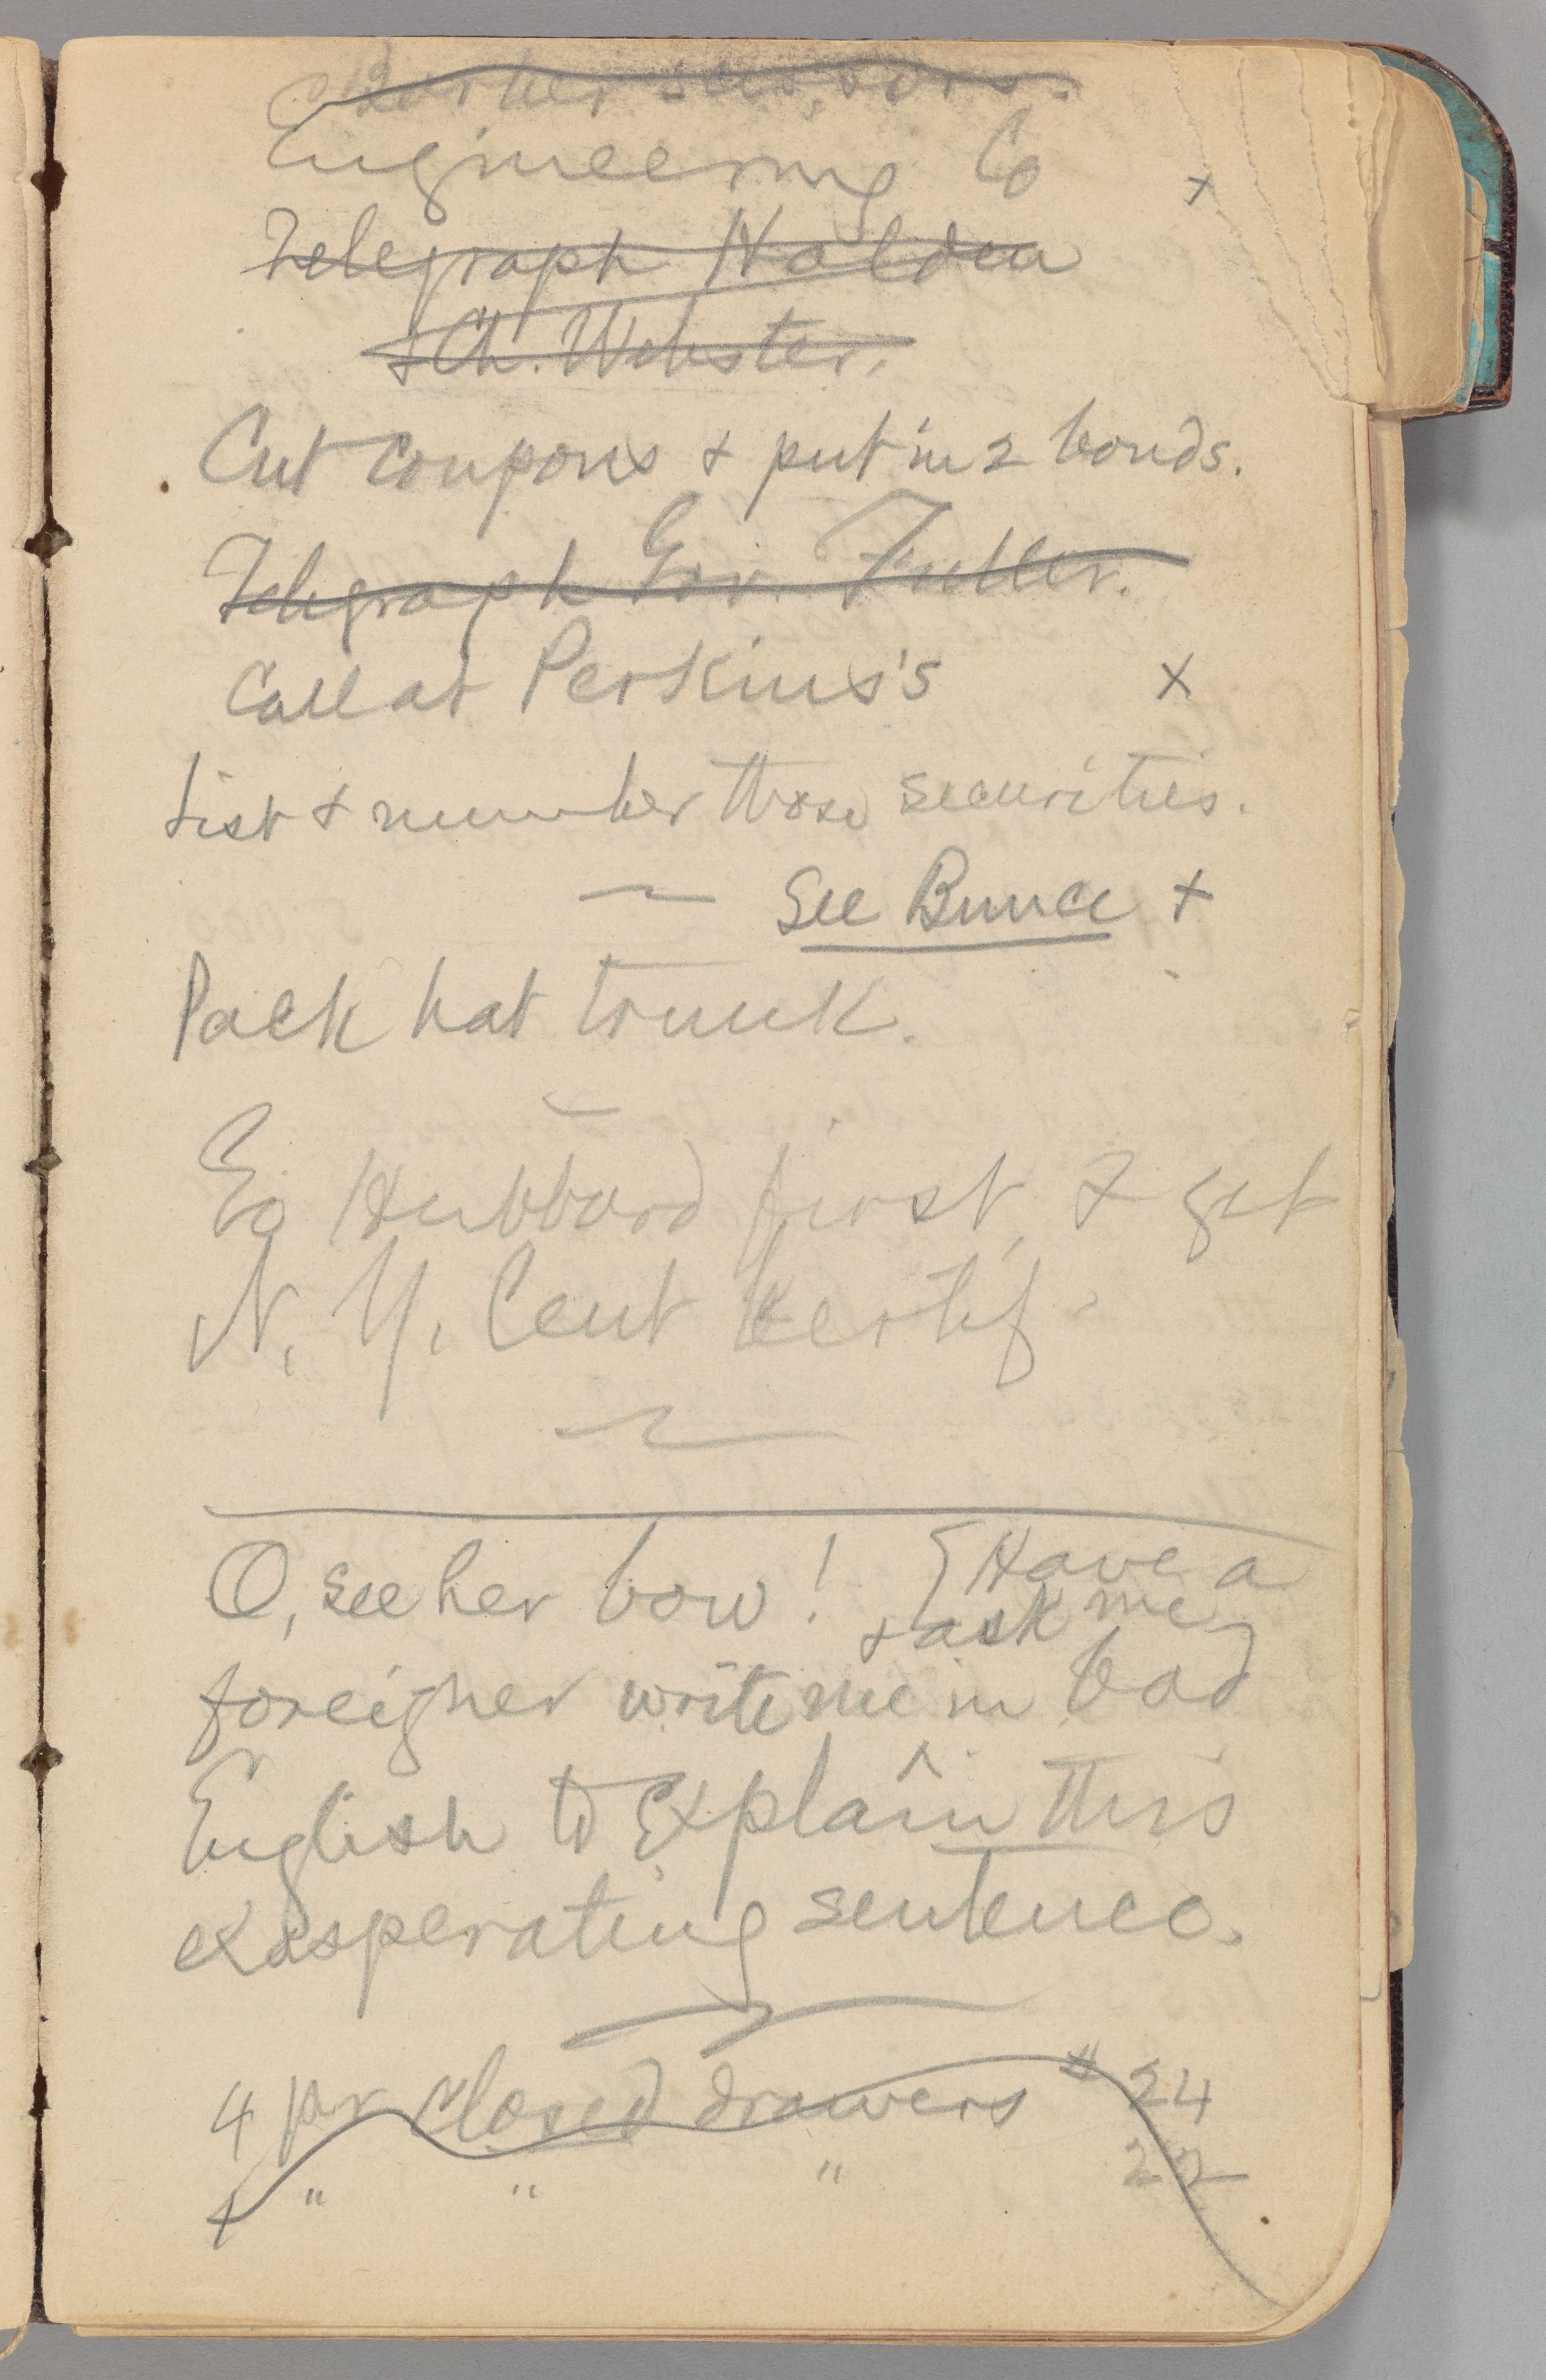 Engineering Co +
Telegraph Halden
+ Ch. Webster.
Cut coupons & put in 2 bonds.
Telegraph Gov. Fuller.
Call at Perkins's x
List & number those securities.
See Bunce +
Pack hat trunk.
Go Hubbard first, & get
N. Y. Cent Certif
O, see her bow! [Have a
& ask me
foreigner write me in bad
English ^ to explain this
exasperating sentence.
4 pr closed drawers # 24
" " " 22